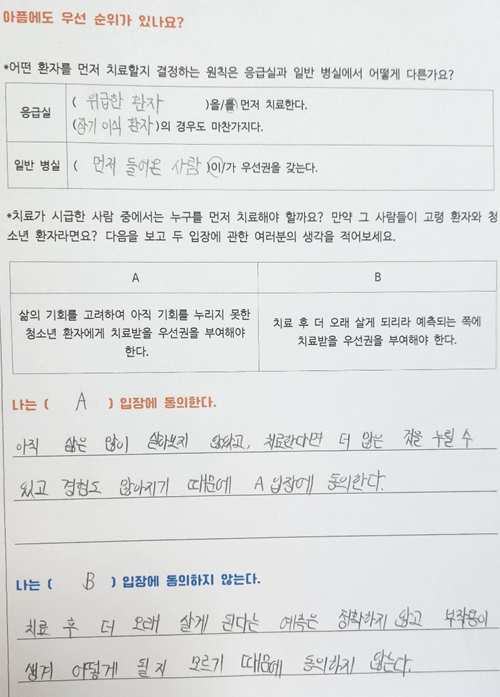 아픔에도 우선 순위가 있나요?
*어떤 환자를 먼저 치료할지 결정하는 원칙은 응급실과 일반 병실에서 어떻게 다른가요?
응급실
( 위급한 환자 )을/를 먼저 치료한다.
(장기 이식 환자)의 경우도 마찬가지다.
일반 병실
( 먼저 들어온 사람 )이/가 우선권을 갖는다.
*치료가 시급한 사람 중에서는 누구를 먼저 치료해야 할까요? 만약 그 사람들이 고령 환자와 청
소년 환자라면요? 다음을 보고 두 입장에 관한 여러분의 생각을 적어보세요.
A
B
삶의 기회를 고려하여 아직 기회를 누리지 못한
청소년 환자에게 치료받을 우선권을 부여해야
한다.
치료 후 더 오래 살게 되리라 예측되는 쪽에
치료받을 우선권을 부여해야 한다.
나는 ( A ) 입장에 동의한다.
아직 삶은 많이 살아보지 않았고, 치료한다면 더 많은 것을 누릴 수
있고 경험도 많아지기 때문에 A 입장에 동의한다.
나는 ( B ) 입장에 동의하지 않는다.
치료 후 더 오래 살게 된다는 예측은 정확하지 않고 부작용이
생겨 어떻게 될지 모르기 때문에 동의하지 않는다.